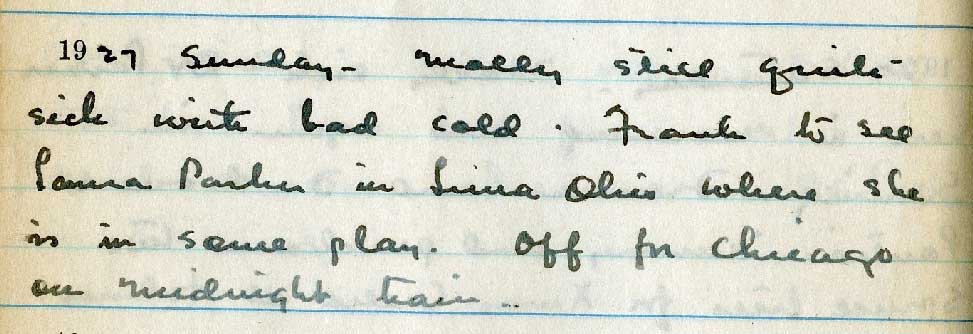 1927 Sunday - Molly still quite
sick with bad cold. Frank to see
Laura Parker in Lima Ohio where she
is in some play. Off for Chicago
on midnight train..